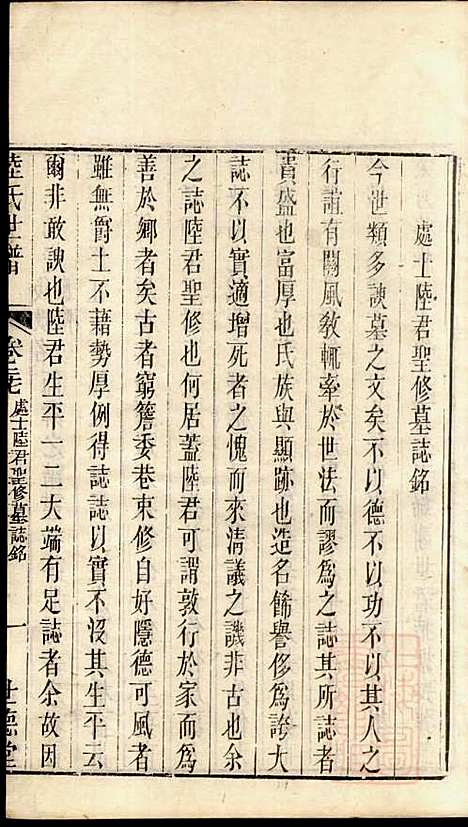 處士陸君聖修墓誌銘
今世類多諛墓之文矣不以德不以功不以其人之
行誼有關風敎輒牽於世法而謬爲之誌其所誌者
貴盛也富厚也氏族與顯跡也造名飾譽侈爲誇大
誌不以實適增死者之愧而來清議之譏非古也余
之誌陸君聖修也何居蓋陸君可謂敦行於家而爲
善於鄉者矣古者窮簷委巷束修自好隱德可風者
雖無爵土不藉勢厚例得誌誌以實不沒其生平云
爾非敢諛也陸君生平一二大端有足誌者余故因
陸氏世譜
卷之
處士陸君聖修墓誌銘
一
世德堂